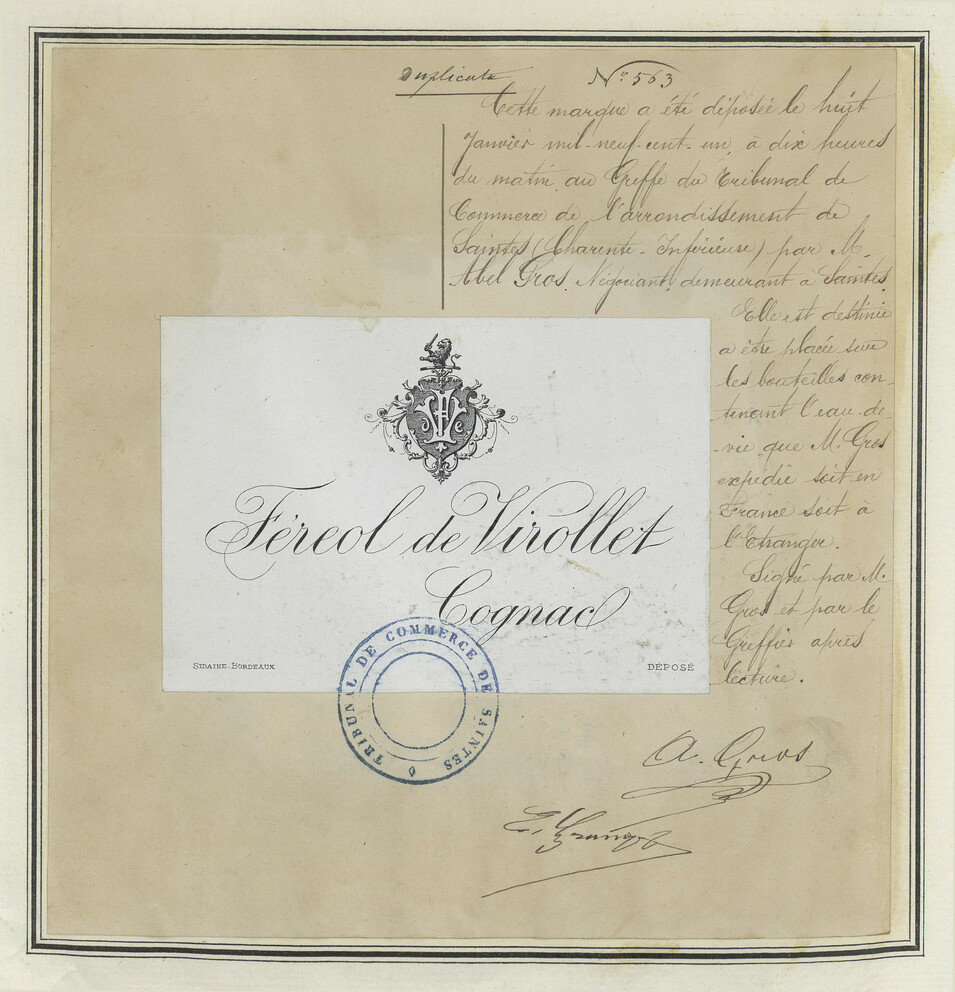 Duplicata
No 563
Cette marque a été déposée le huit
Janvier mil-neuf-cent-un, à dix heures
du matin, au Greffe du Tribunal de
Commerce de l'arrondissement de
Saintes (Charente-Inférieure) par M.
Abel Gros, Négociant, demeurant à Saintes.
Elle est destinée
à être placée sur
les bouteilles con-
tenant l'eau-de-
vie que M. Gros
expédie soit en
France soit à
l'Etranger.
Signé par M.
Gros et par le
Greffier après
lecture.
Féreol de Virollet
Cognac
SIDAINE-BORDEAUX
DÉPOSÉ
TRIBUNAL DE COMMERCE DE SAINTES
A. Gros